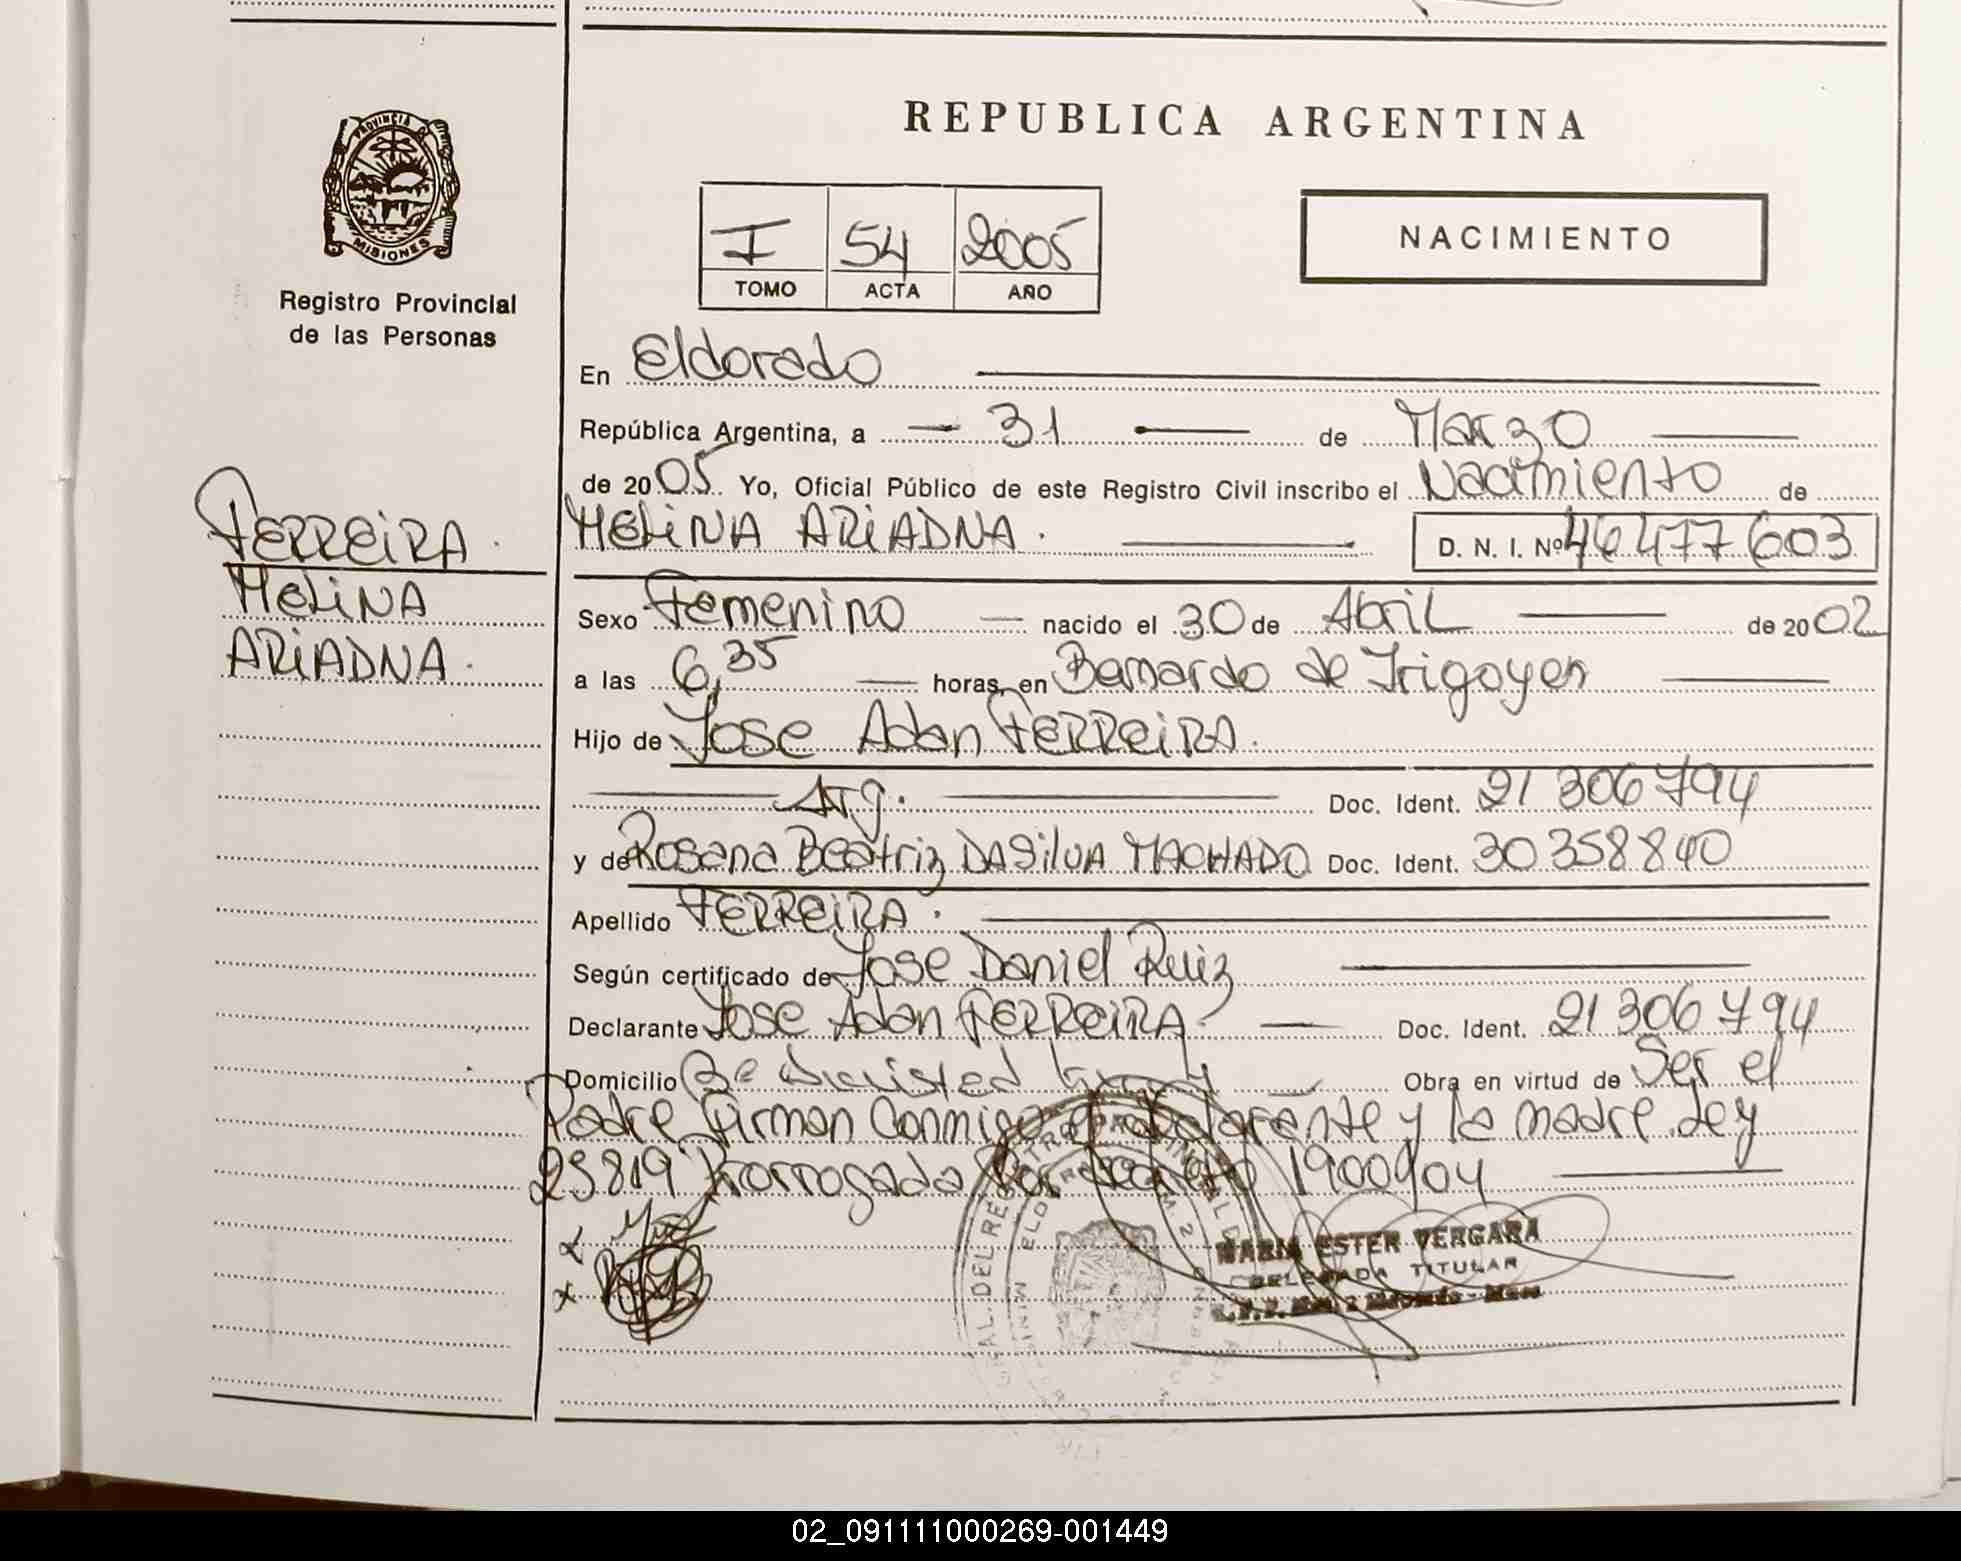 PROVINCIA DE
MISIONES
Registro Provincial
de las Personas
FERREIRA.
MELINA
ARIADNA.
REPUBLICA ARGENTINA
I 54 2005
TOMO ACTA AÑO
NACIMIENTO
En Eldorado
República Argentina, a 31 de Marzo
de 2005 Yo, Oficial Público de este Registro Civil inscribo el Nacimiento de
MELINA ARIADNA. D. N. I. Nº 46477603
Sexo Femenino nacido el 30 de Abril de 2002
a las 6,35 horas, en Bernardo de Irigoyen
Hijo de Jose Adan FERREIRA.
Arg. Doc. Ident. 21 306 794
y de Rosana Beatriz DASILVA MACHADO Doc. Ident. 30 358 840
Apellido FERREIRA.
Según certificado de Jose Daniel Ruiz
Declarante Jose Adan FERREIRA Doc. Ident. 21 306 794
Domicilio Obra en virtud de Ser el
Padre Firman Conmigo el declarante y la madre Ley
25819 Prorrogada Por decreto 1900/04
MARIA ESTER VERGARA
DELEGADA TITULAR
02_091111000269-001449